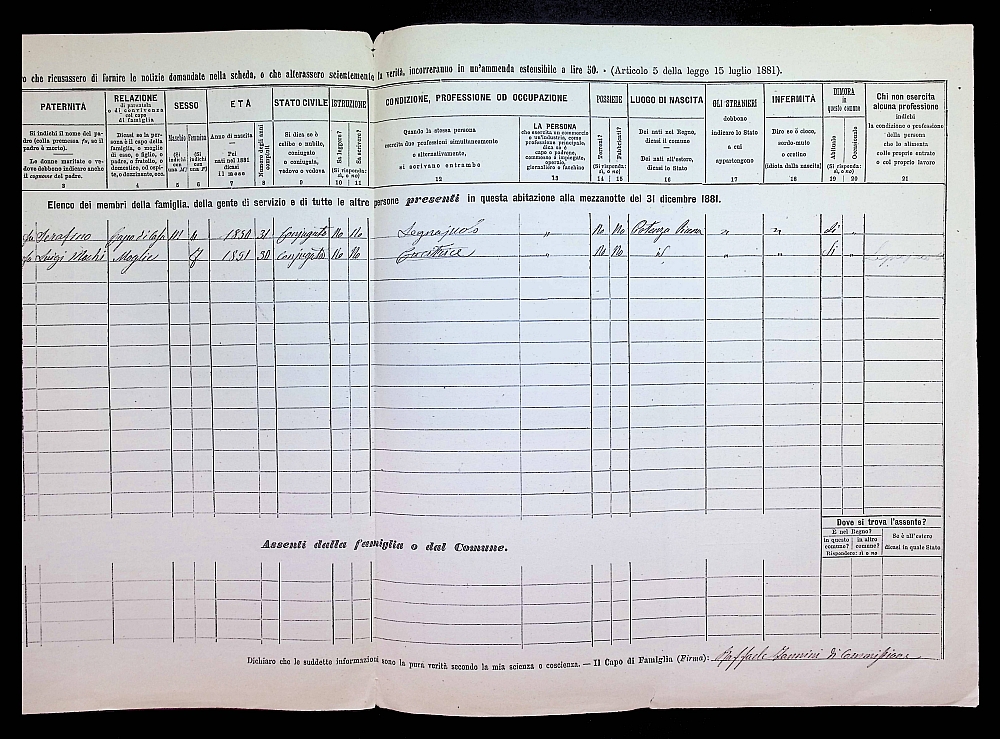 o che ricusassero di fornire le notizie domandate nella scheda, o che alterassero scientemente la verità, incorreranno in un'ammenda estensibile a lire 50. - (Articolo 5 della legge 15 luglio 1881).
PATERNITÀ
Si indichi il nome del padre (colla premessa fu, se il padre è morto).
Le donne maritate o vedove debbono indicare anche il cognome del padre.
3
RELAZIONE
di parentela
o di convivenza
col capo
di famiglia
Dicasi se la persona è il capo della famiglia, o moglie di esso, o figlio, o padre, o fratello, o domestico, od ospite, o dozzinante, ecc.
4
SESSO
Maschio
(Si indichi con una M)
Femmina
(Si indichi con una F)
5 6
ETÀ
Anno di nascita
—
Pei nati nel 1881 dicasi il mese
7
Numero degli anni compiuti
8
STATO CIVILE
Si dica se è
celibe o nubile,
o coniugato,
o coniugata,
vedovo o vedova
9
ISTRUZIONE
Sa leggere?
Sa scrivere?
(Si risponda: sì, o no)
10 11
CONDIZIONE, PROFESSIONE OD OCCUPAZIONE
Quando la stessa persona
esercita due professioni simultaneamente
o alternativamente,
si scrivano entrambe
12
LA PERSONA
che esercita un commercio
o un'industria, come
professione principale,
dica se è
capo o padrone,
commesso o impiegato,
operaio,
giornaliero o facchino
13
POSSIEDE
Terreni?
Fabbricati?
(Si risponda: sì, o no)
14 15
LUOGO DI NASCITA
Dei nati nel Regno,
dicasi il comune
—
Dei nati all'estero,
dicasi lo Stato
16
GLI STRANIERI
debbono
indicare lo Stato
a cui
appartengono
17
INFERMITÀ
Dire se è cieco,
sordo-muto
o cretino
(idiota dalla nascita)
18
DIMORA
in
questo comune
Abituale
Occasionale
(Si risponda: sì, o no)
19 20
Chi non esercita
alcuna professione
indichi
la condizione o professione
della persona
che lo alimenta
colle proprie entrate
o col proprio lavoro
21
Elenco dei membri della famiglia, della gente di servizio e di tutte le altre persone presenti in questa abitazione alla mezzanotte del 31 dicembre 1881.
fu Serafino Capo di Casa M 1850 31 Conjugato No No Legnajuolo " No No Potenza Picena " " Si "
fu Luigi Moglie F 1851 30 Conjugata No No Cucitrice " No No id " " Si "
Assenti dalla famiglia o dal Comune.
Dove si trova l'assente?
È nel Regno?
in questo comune?
in altro comune?
Rispondere: sì o no
Se è all'estero
dicasi in quale Stato
Dichiaro che le suddette informazioni sono la pura verità secondo la mia scienza e coscienza. — Il Capo di Famiglia (Firma): Raffaele di Commissione